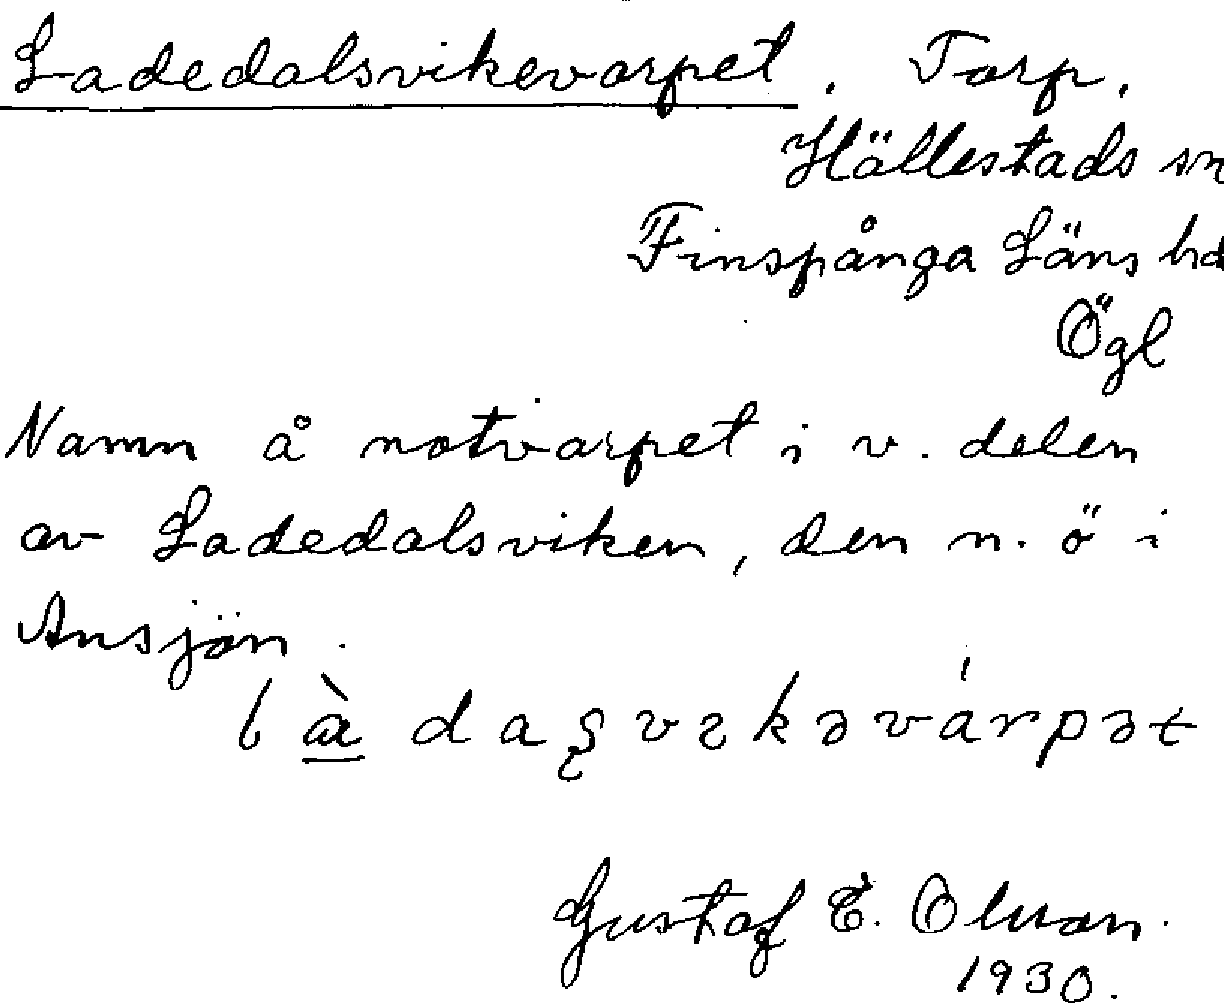 Ladedalsvikevarpet. Torp.
Hällestads sn
Finspånga Läns hd
Ögl
Namn å notvarpet i v. delen
av Ladedalsviken, den n. ö i
Ansjön.
Gustaf E. Olsson.
1930.